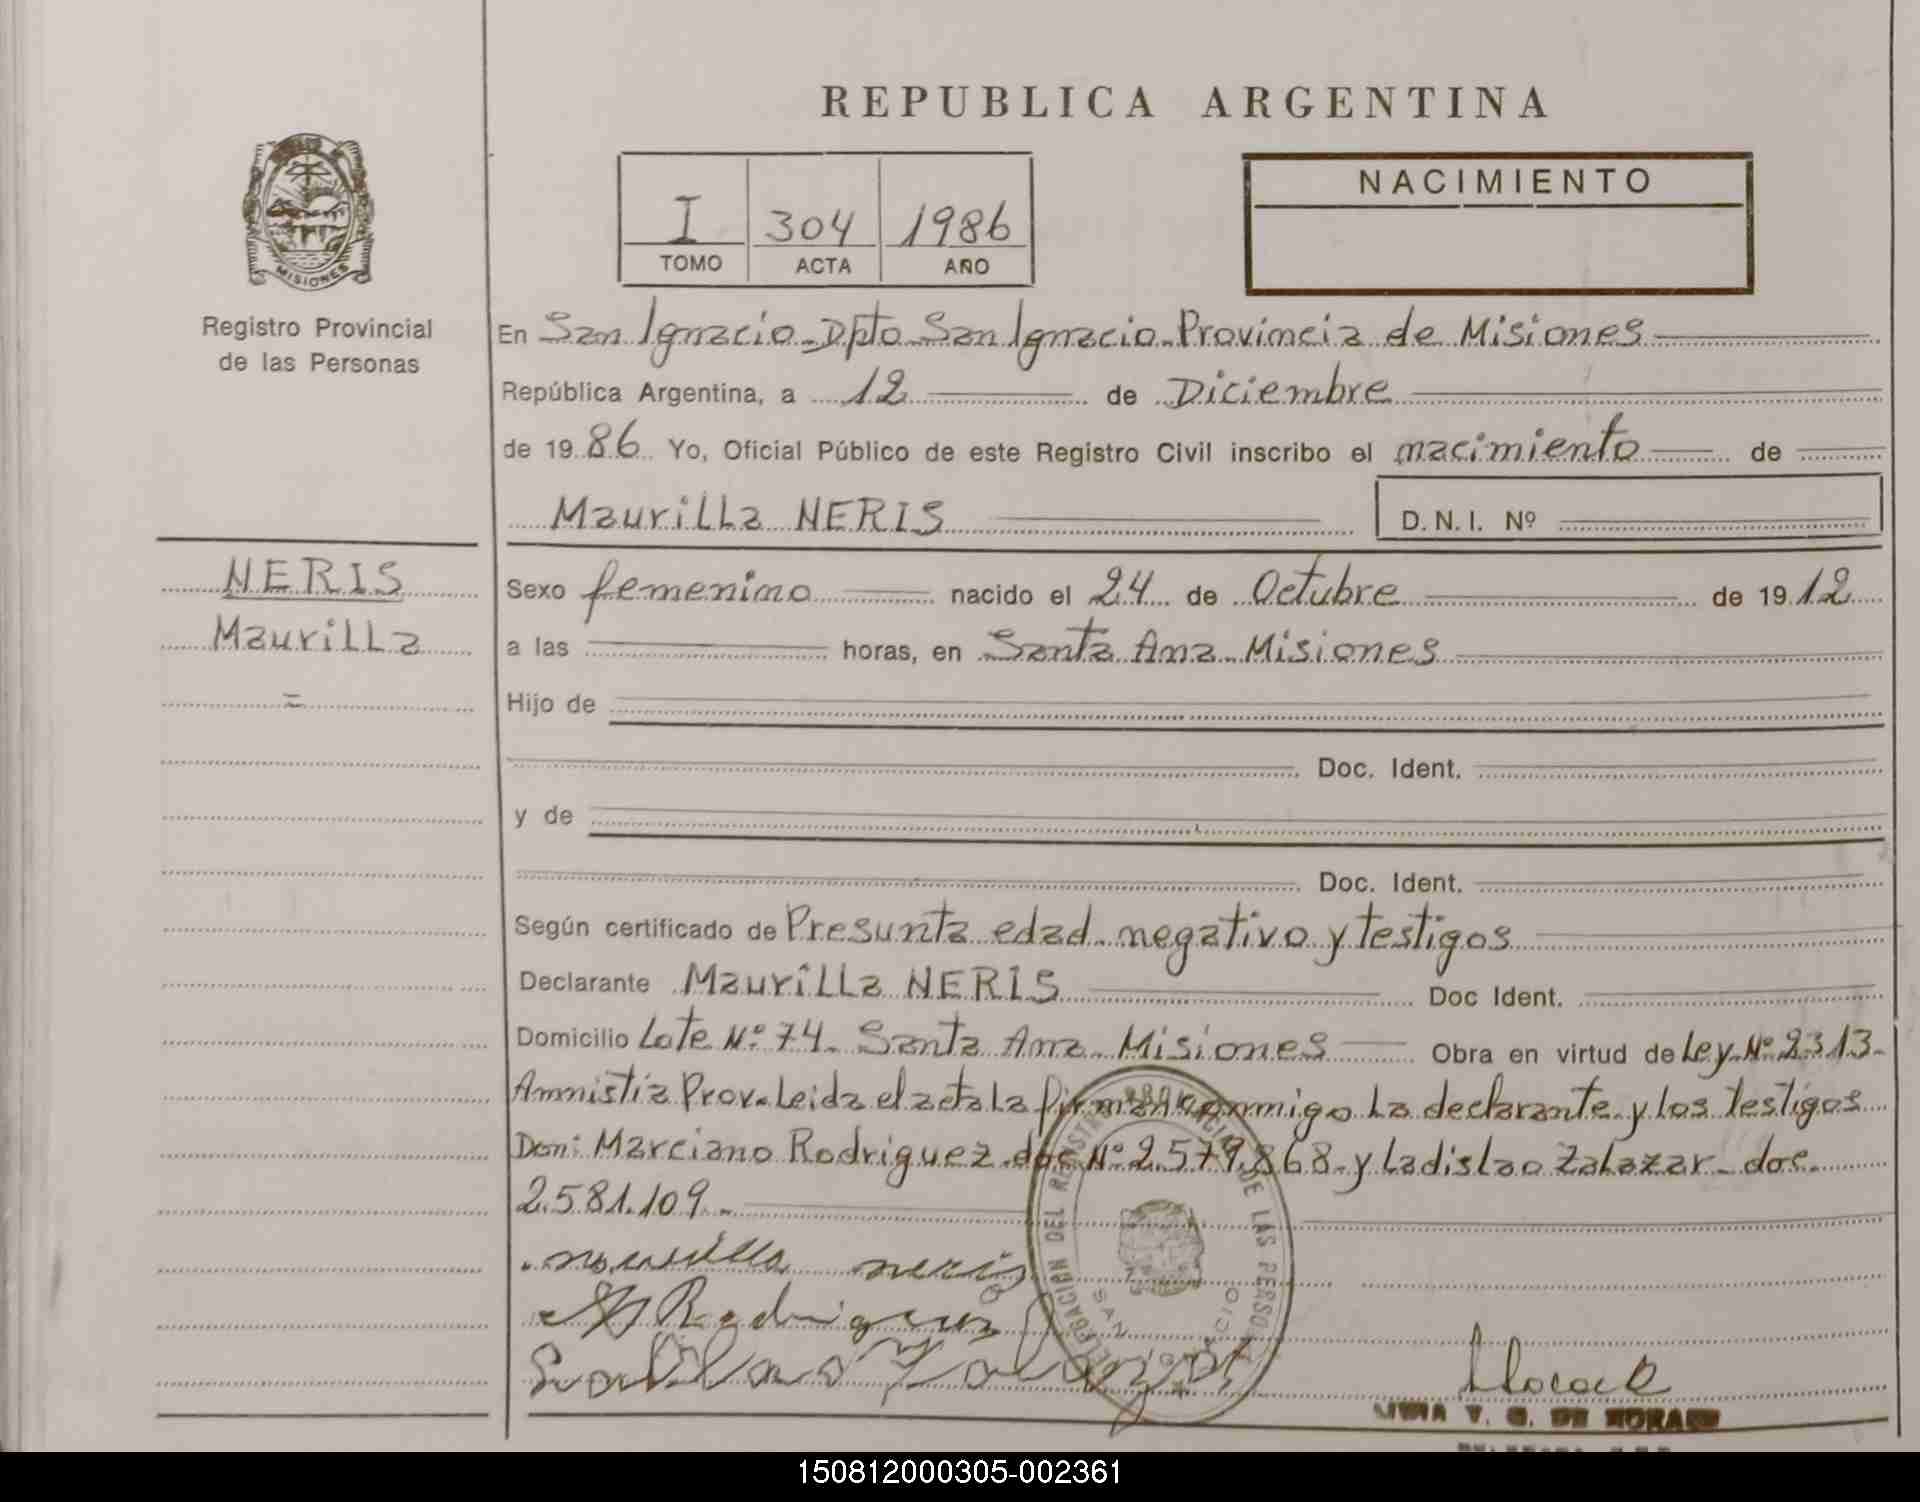 REPUBLICA ARGENTINA
MISIONES
Registro Provincial
de las Personas
I 304 1986
TOMO ACTA AÑO
NACIMIENTO
En San Ignacio - Dpto San Ignacio - Provincia de Misiones
República Argentina, a 12 de Diciembre
de 1986 Yo, Oficial Público de este Registro Civil inscribo el nacimiento de
Maurilla NERIS D.N.I. Nº
NERIS
Maurilla
Sexo femenino nacido el 24 de Octubre de 1912
a las horas, en Santa Ana - Misiones
Hijo de
Doc. Ident.
y de
Doc. Ident.
Según certificado de Presunta edad - negativo y testigos
Declarante Maurilla NERIS Doc Ident.
Domicilio Lote Nº 74 - Santa Ana - Misiones Obra en virtud de Ley Nº 2313 -
Amnistia Prov. Leida el acta la firman conmigo la declarante y los testigos
Don: Marciano Rodriguez - doc Nº 2.579.868 - y Ladislao Zalazar - doc.
2.581.109 -
maurilla neris
Rodriguez
DELEGACION DEL REGISTRO PROVINCIAL DE LAS PERSONAS
SAN IGNACIO
V. G. DE MORAES
150812000305-002361